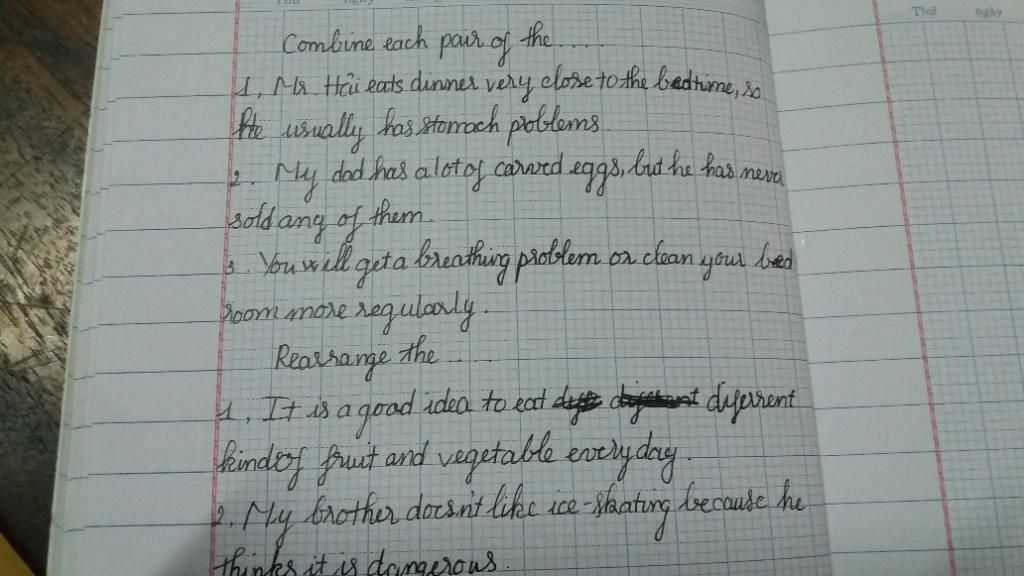 Thứ ngày
Thứ ngày
Combine each pair of the.....
1, Mr Hải eats dinner very close to the bedtime, so
He usually has stomach problems
2. My dad has a lot of carved eggs, but he has never
sold ang of them.
3. You will get a breathing problem or clean your bed
room more regularly.
Rearrange the ....
1, It is a good idea to eat dyferrent
kind of fruit and vegetable every day.
2, My brother doesn't like ice-skating because he
thinks it is dangerous.